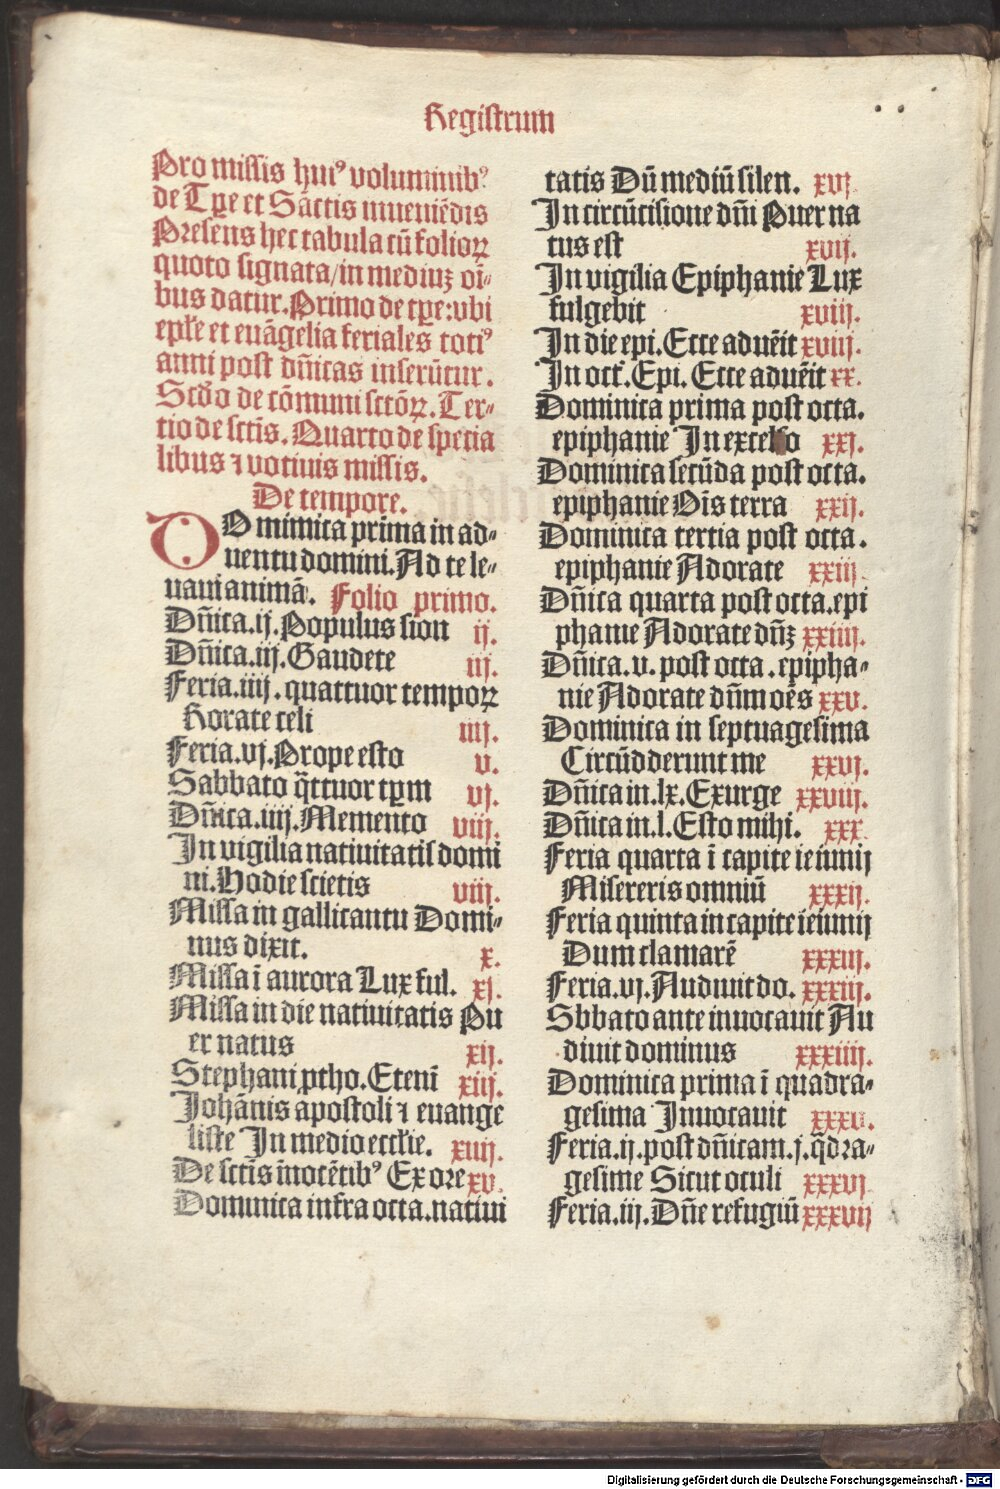 Registrum
Pro missis huiꝰ voluminibꝰ
de Tꝑe et Sāctis inueniēdis
Presens hec tabula cū folioꝝ
quoto signata/in mediuꝫ oī-
bus datur. Primo de tꝑe: vbi
ep̄le et euāgelia feriales totiꝰ
anni post dn̄icas inserūtur.
Scd̄o de cōmuni sctōꝝ. Ter-
tio de sctīs. Quarto de specia
libus ⁊ votiuis missis.
De tempore.
Dominica prima in ad-
uentu domini. Ad te le-
uaui animā. Folio primo.
Dn̄ica.ij. Populus sion ij.
Dn̄ica.iij. Gaudete iij.
Feria.iiij. quattuor tempoꝝ
Rorate celi iiij.
Feria.vj. Prope esto v.
Sabbato q̄ttuor tꝑm vj.
Dn̄ica.iiij. Memento viij.
In vigilia natiuitatis domi
ni. Hodie scietis viij.
Missa in gallicantu Domi-
nus dixit. x.
Missa ī aurora Lux ful. xj.
Missa in die natiuitatis Pu
er natus xij.
Stephani ꝓtho. Etenī xiij.
Johānis apostoli ⁊ euange
liste In medio eccl̄ie. xiiij.
De sctīs īnocētibꝰ Ex ore xv.
Dominica infra octa. natiui
tatis Dū mediū silen. xvj.
In circūcisione dn̄i Puer na
tus est xvij.
In vigilia Epiphanie Lux
fulgebit xviij.
In die epi. Ecce aduēit xviij.
In oct̄. Epi. Ecce aduēit xx.
Dominica prima post octa.
epiphanie In excelso xxj.
Dominica secūda post octa.
epiphanie Oīs terra xxij.
Dominica tertia post octa.
epiphanie Adorate xxiij.
Dn̄ica quarta post octa. epi
phanie Adorate dn̄ꝫ xxiiij.
Dn̄ica.v. post octa. epipha-
nie Adorate dn̄m oēs xxv.
Dominica in septuagesima
Circūdderunt me xxvj.
Dn̄ica in.lx. Exurge xxviij.
Dn̄ica in.l. Esto mihi. xxx.
Feria quarta ī capite ieiunij
Misereris omniū xxxij.
Feria quinta in capite ieiunij
Dum clamarē xxxiij.
Feria.vj. Audiuit do. xxxiij.
Sbbato ante inuocauit Au
diuit dominus xxxiiij.
Dominica prima ī quadra-
gesima Inuocauit xxxv.
Feria.ij. post dn̄icam.j. q̄dra-
gesime Sicut oculi xxxvj.
Feria.iij. Dn̄e refugiū xxxvij
Digitalisierung gefördert durch die Deutsche Forschungsgemeinschaft - DFG